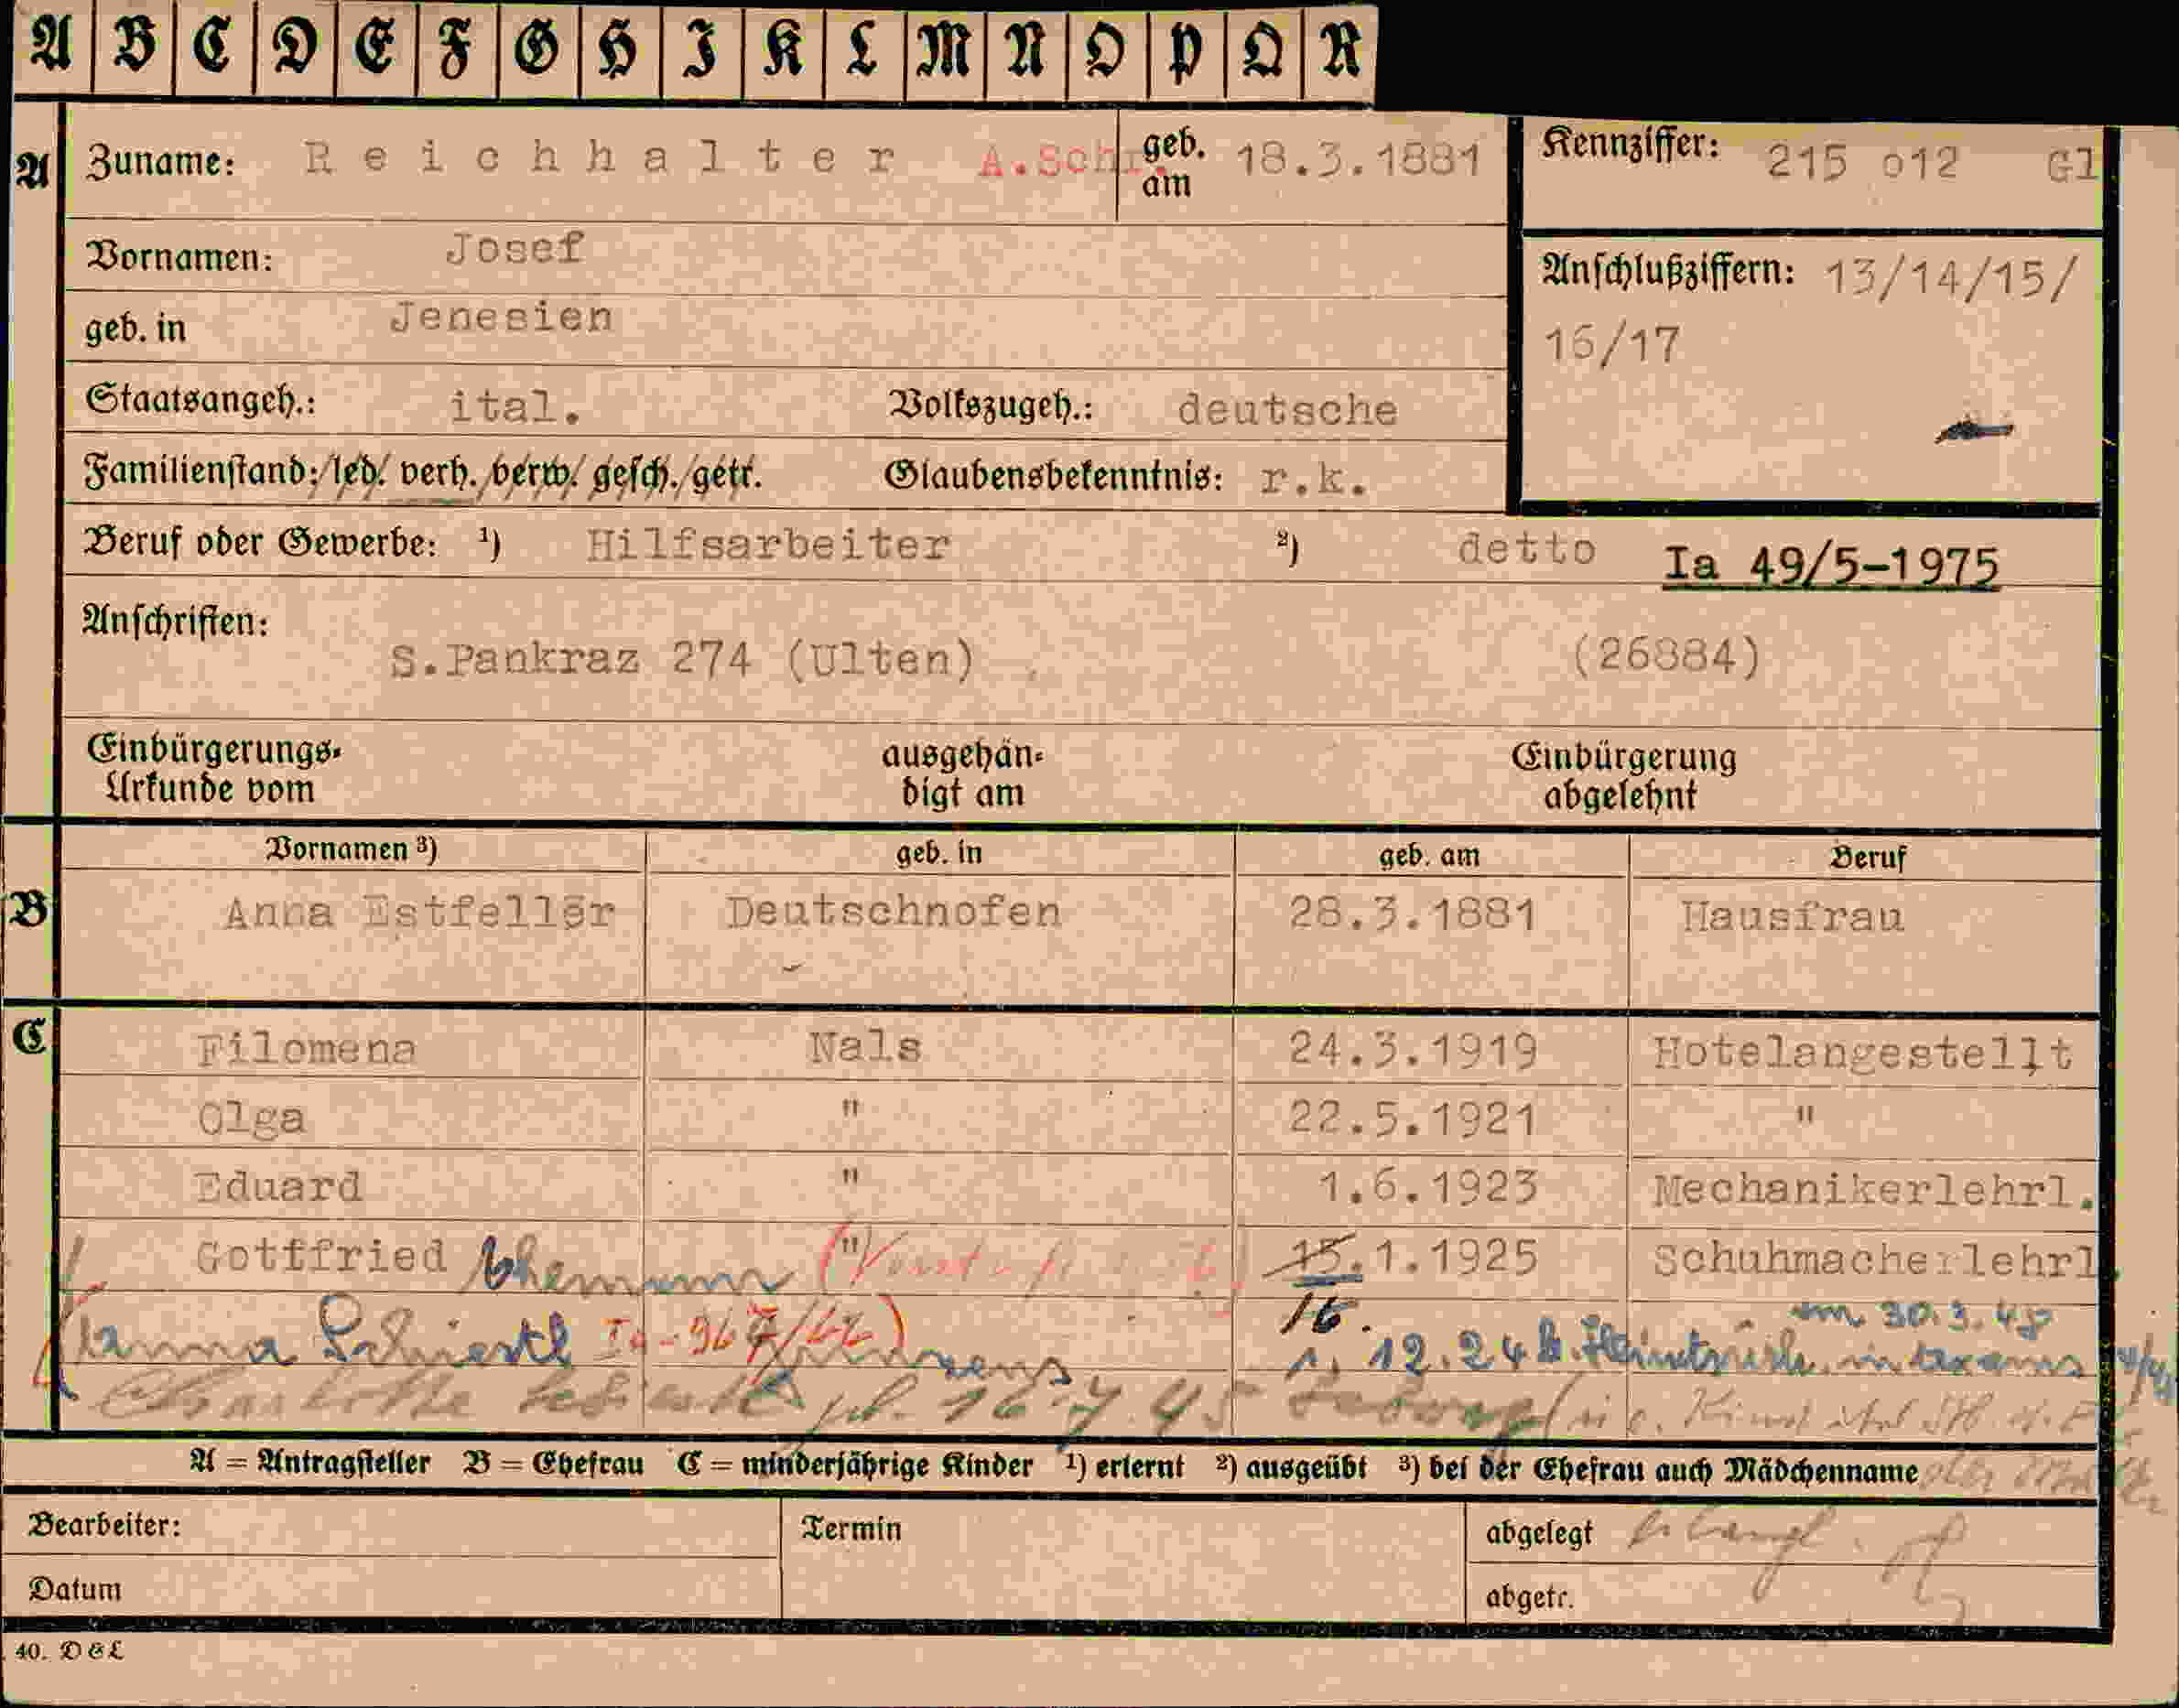 A B C D E F G H I K L M N O P Q R
A Zuname: Reichhalter A.Sch geb. am 18.3.1881 Kennziffer: 215 012 Gl
Vornamen: Josef
Anschlußziffern: 13/14/15/
geb. in Jenesien
16/17
Staatsangeh.: ital. Volkszugeh.: deutsche
Familienstand: led. verh. verw. gesch. getr. Glaubensbekenntnis: r.k.
Beruf oder Gewerbe: ¹) Hilfsarbeiter ²) detto Ia 49/5-1975
Anschriften:
S.Pankraz 274 (Ulten) (26884)
Einbürgerungs- ausgehän- Einbürgerung
Urkunde vom digt am abgelehnt
Vornamen ³) geb. in geb. am Beruf
B Anna Estfeller Deutschnofen 28.3.1881 Hausfrau
C Filomena Nals 24.3.1919 Hotelangestellt
Olga " 22.5.1921 "
Eduard " 1.6.1923 Mechanikerlehrl.
Gottfried Ehemann " 15.1.1925 Schuhmacherlehrl.
16. am 30.3.48
Schiestl 1. 12.24 in
geb. 16.7.45
A = Antragsteller B = Ehefrau C = minderjährige Kinder ¹) erlernt ²) ausgeübt ³) bei der Ehefrau auch Mädchenname
Bearbeiter: Termin abgelegt
Datum abgetr.
40. D&L